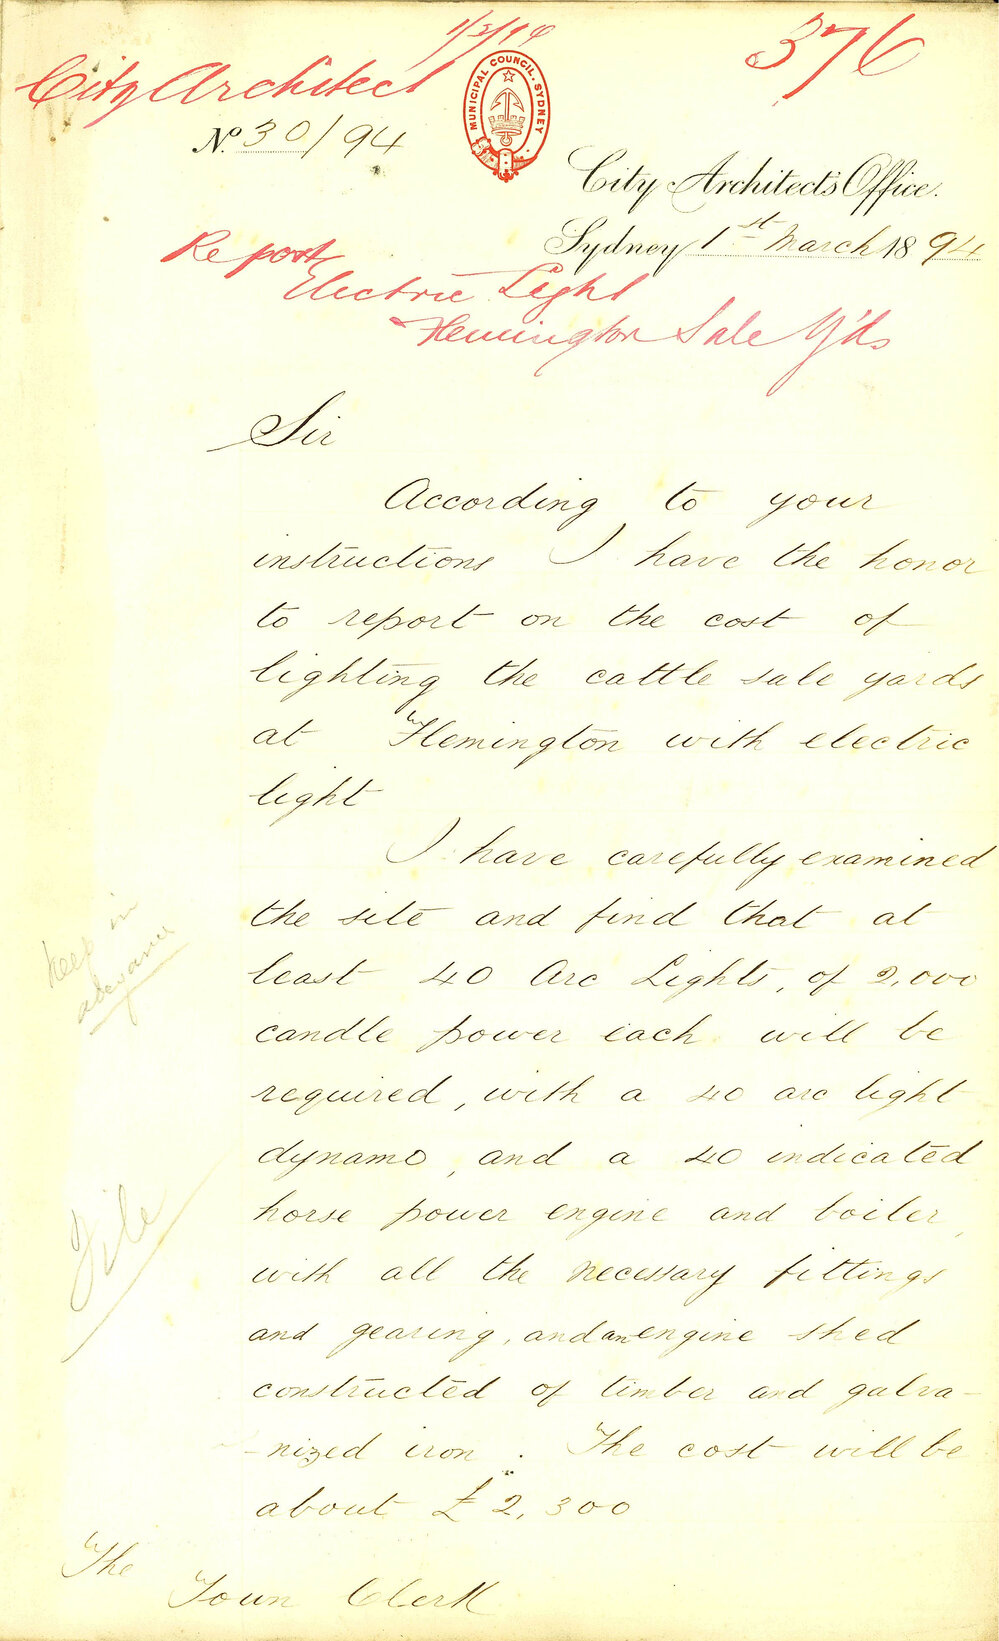 1/3/94
376
City Architect
MUNICIPAL COUNCIL. SYDNEY
No. 30/94
City Architect's Office.
Sydney 1st March 1894
Report
Electric Light
Flemington Sale Yds
Sir
According to your
instructions I have the honor
to report on the cost of
lighting the cattle sale yards
at Flemington with electric
light
I have carefully examined
the site and find that at
least 40 Arc Lights, of 2,000
candle power each will be
required, with a 40 arc light
dynamo, and a 40 indicated
horse power engine and boiler,
with all the necessary fittings
and gearing, and an engine shed
constructed of timber and galva-
-nized iron. The cost will be
about £2,300
The
Town Clerk
Keep in
abeyance
File